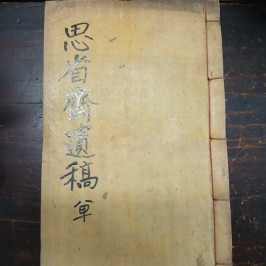 思省齋遺稿 單